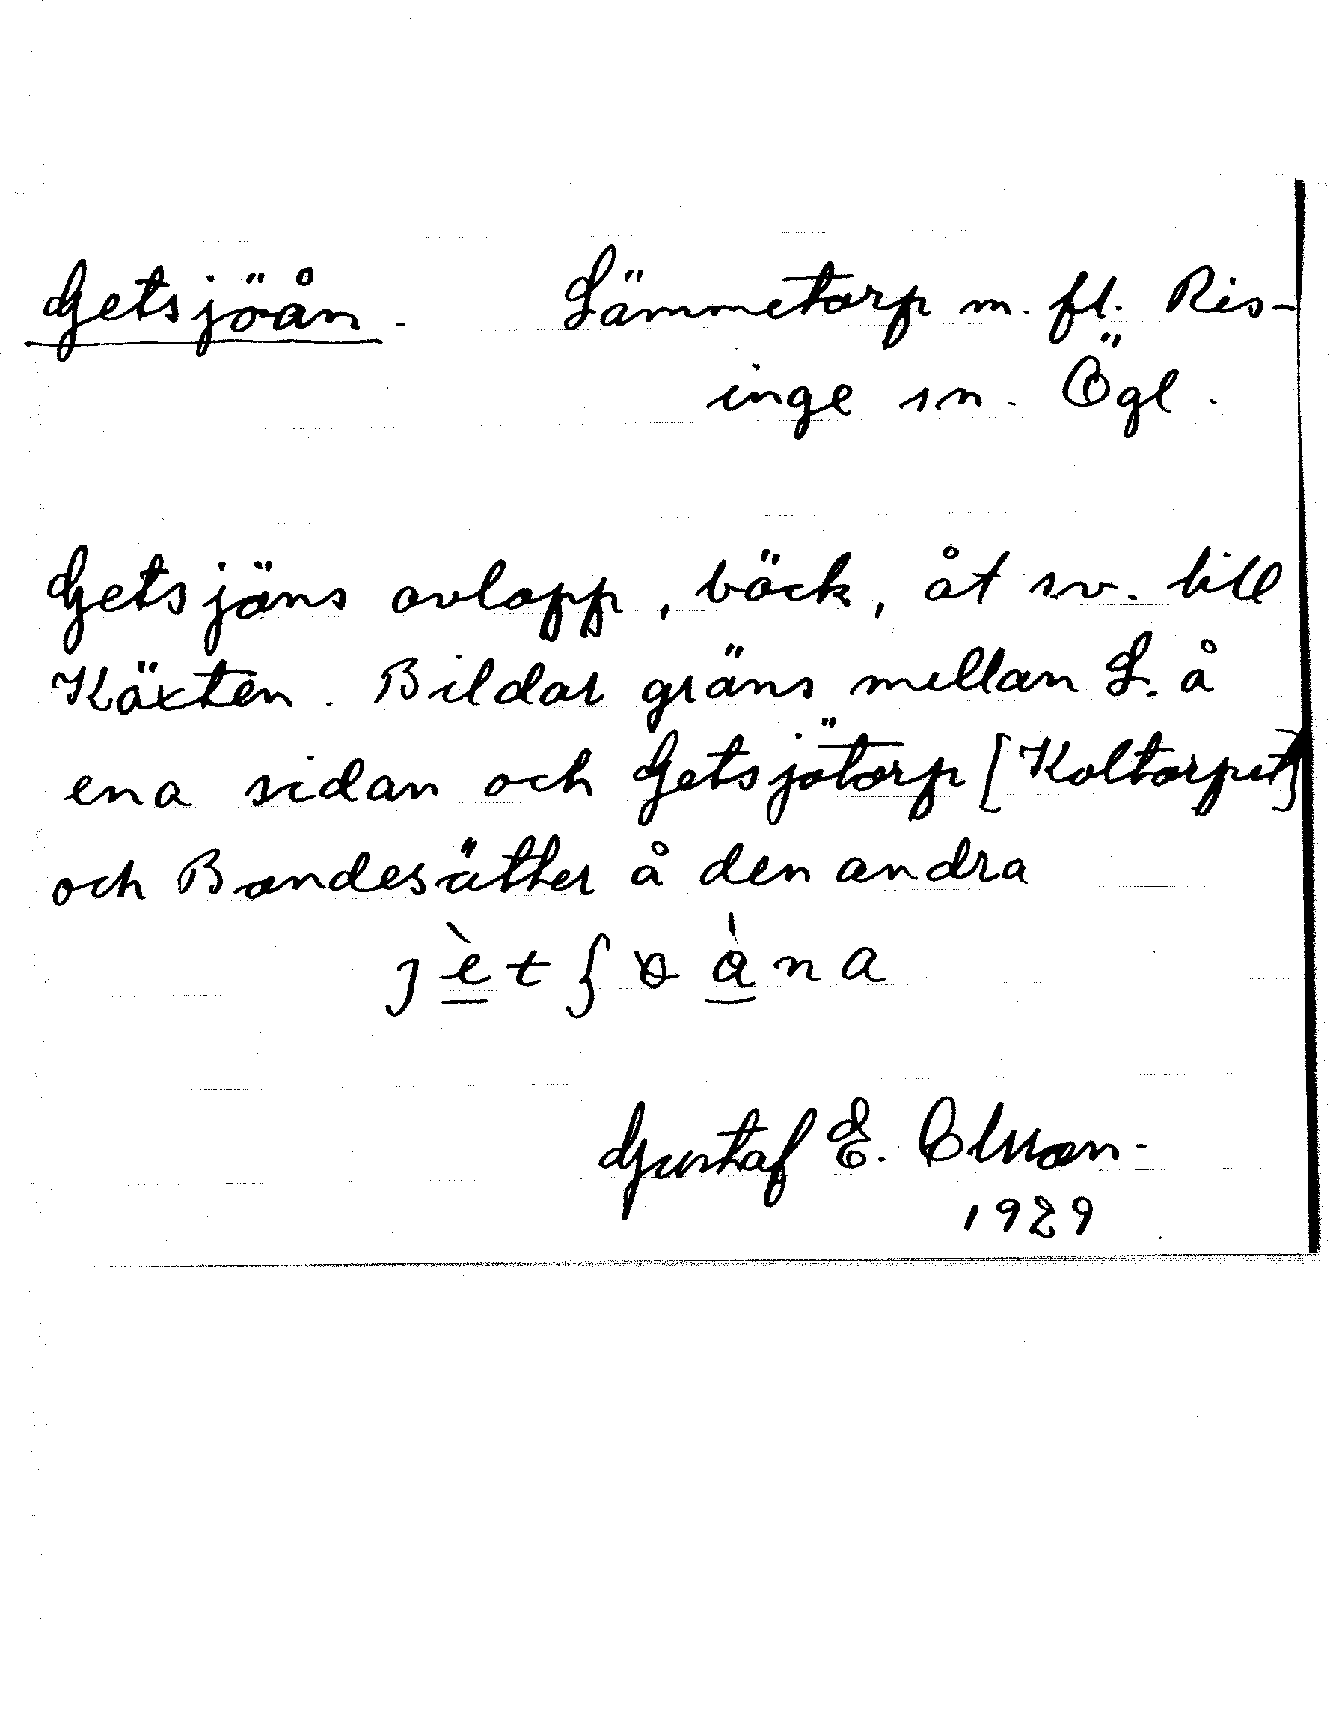 Getsjöån. Lämmetorp m. fl. Ris-
inge sn. Ögl.
Getsjöns avlopp, bäck, åt sv. till
Käxten. Bildar gräns mellan L. å
ena sidan och Getsjötorp [Koltorpet]
och Bondesätter å den andra
Gustaf E. Olsson.
1929